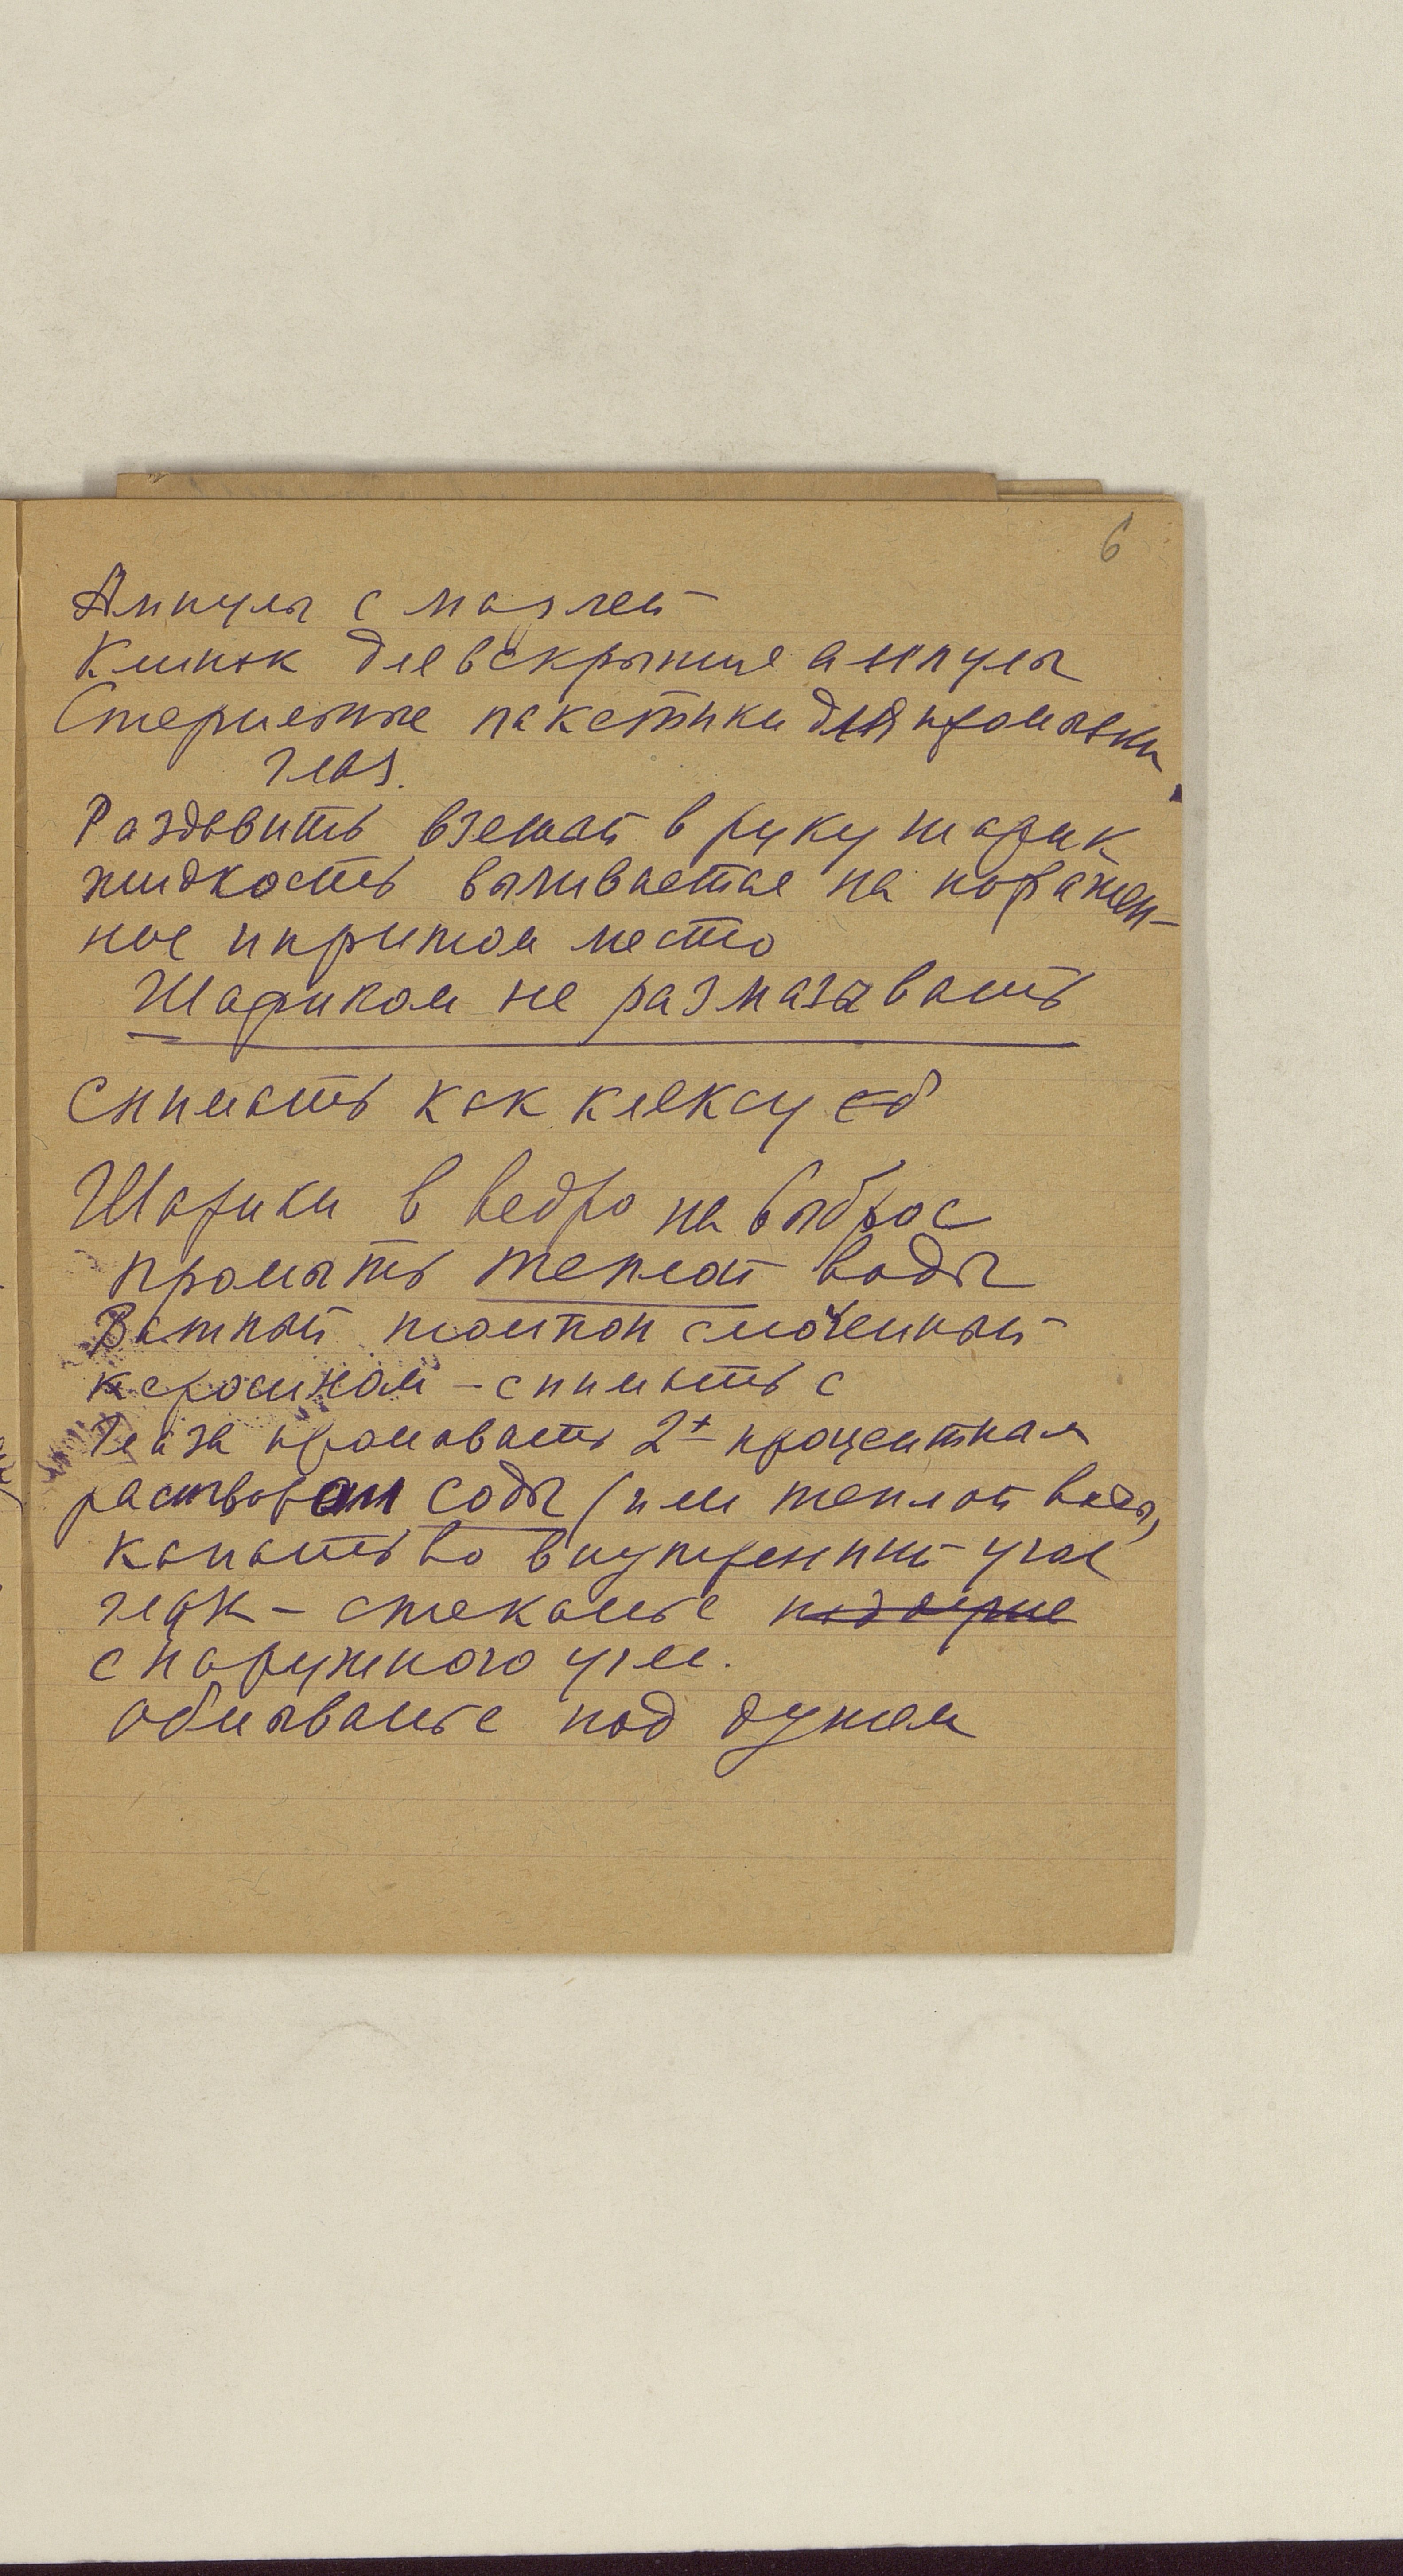 6
Ампулы с марлей
Клинок для вскрытие ампулы
Стерильные пакетики для промывки
глаз.
Раздавить взятой в руку шарик
жидкость выливается на поражен-
ное ипритом место
Шариком не размазывать
Снимать как кляксу
Шарики в ведро на выброс
промыть теплой воды
Ватный тампон смоченный
керосином – снимать с
Глаза промывать 2 процентном
раствором соды (или теплой воды,
капать во внутренний угол
глаз – стекание
с наружного угла.
Обмыванье под душем